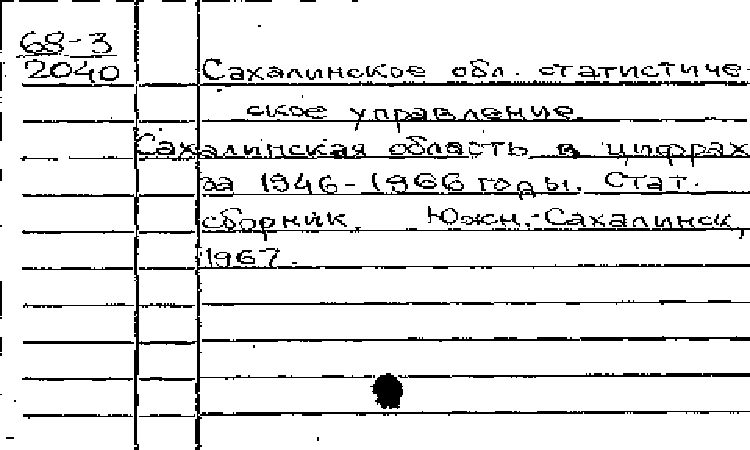 68-3
2040
Сахалинское обл. статистиче-
ское управление.
Сахалинская область в цифрах
за 1946-1966 годы. Стат.
сборник. Южн.-Сахалинск,
1967.